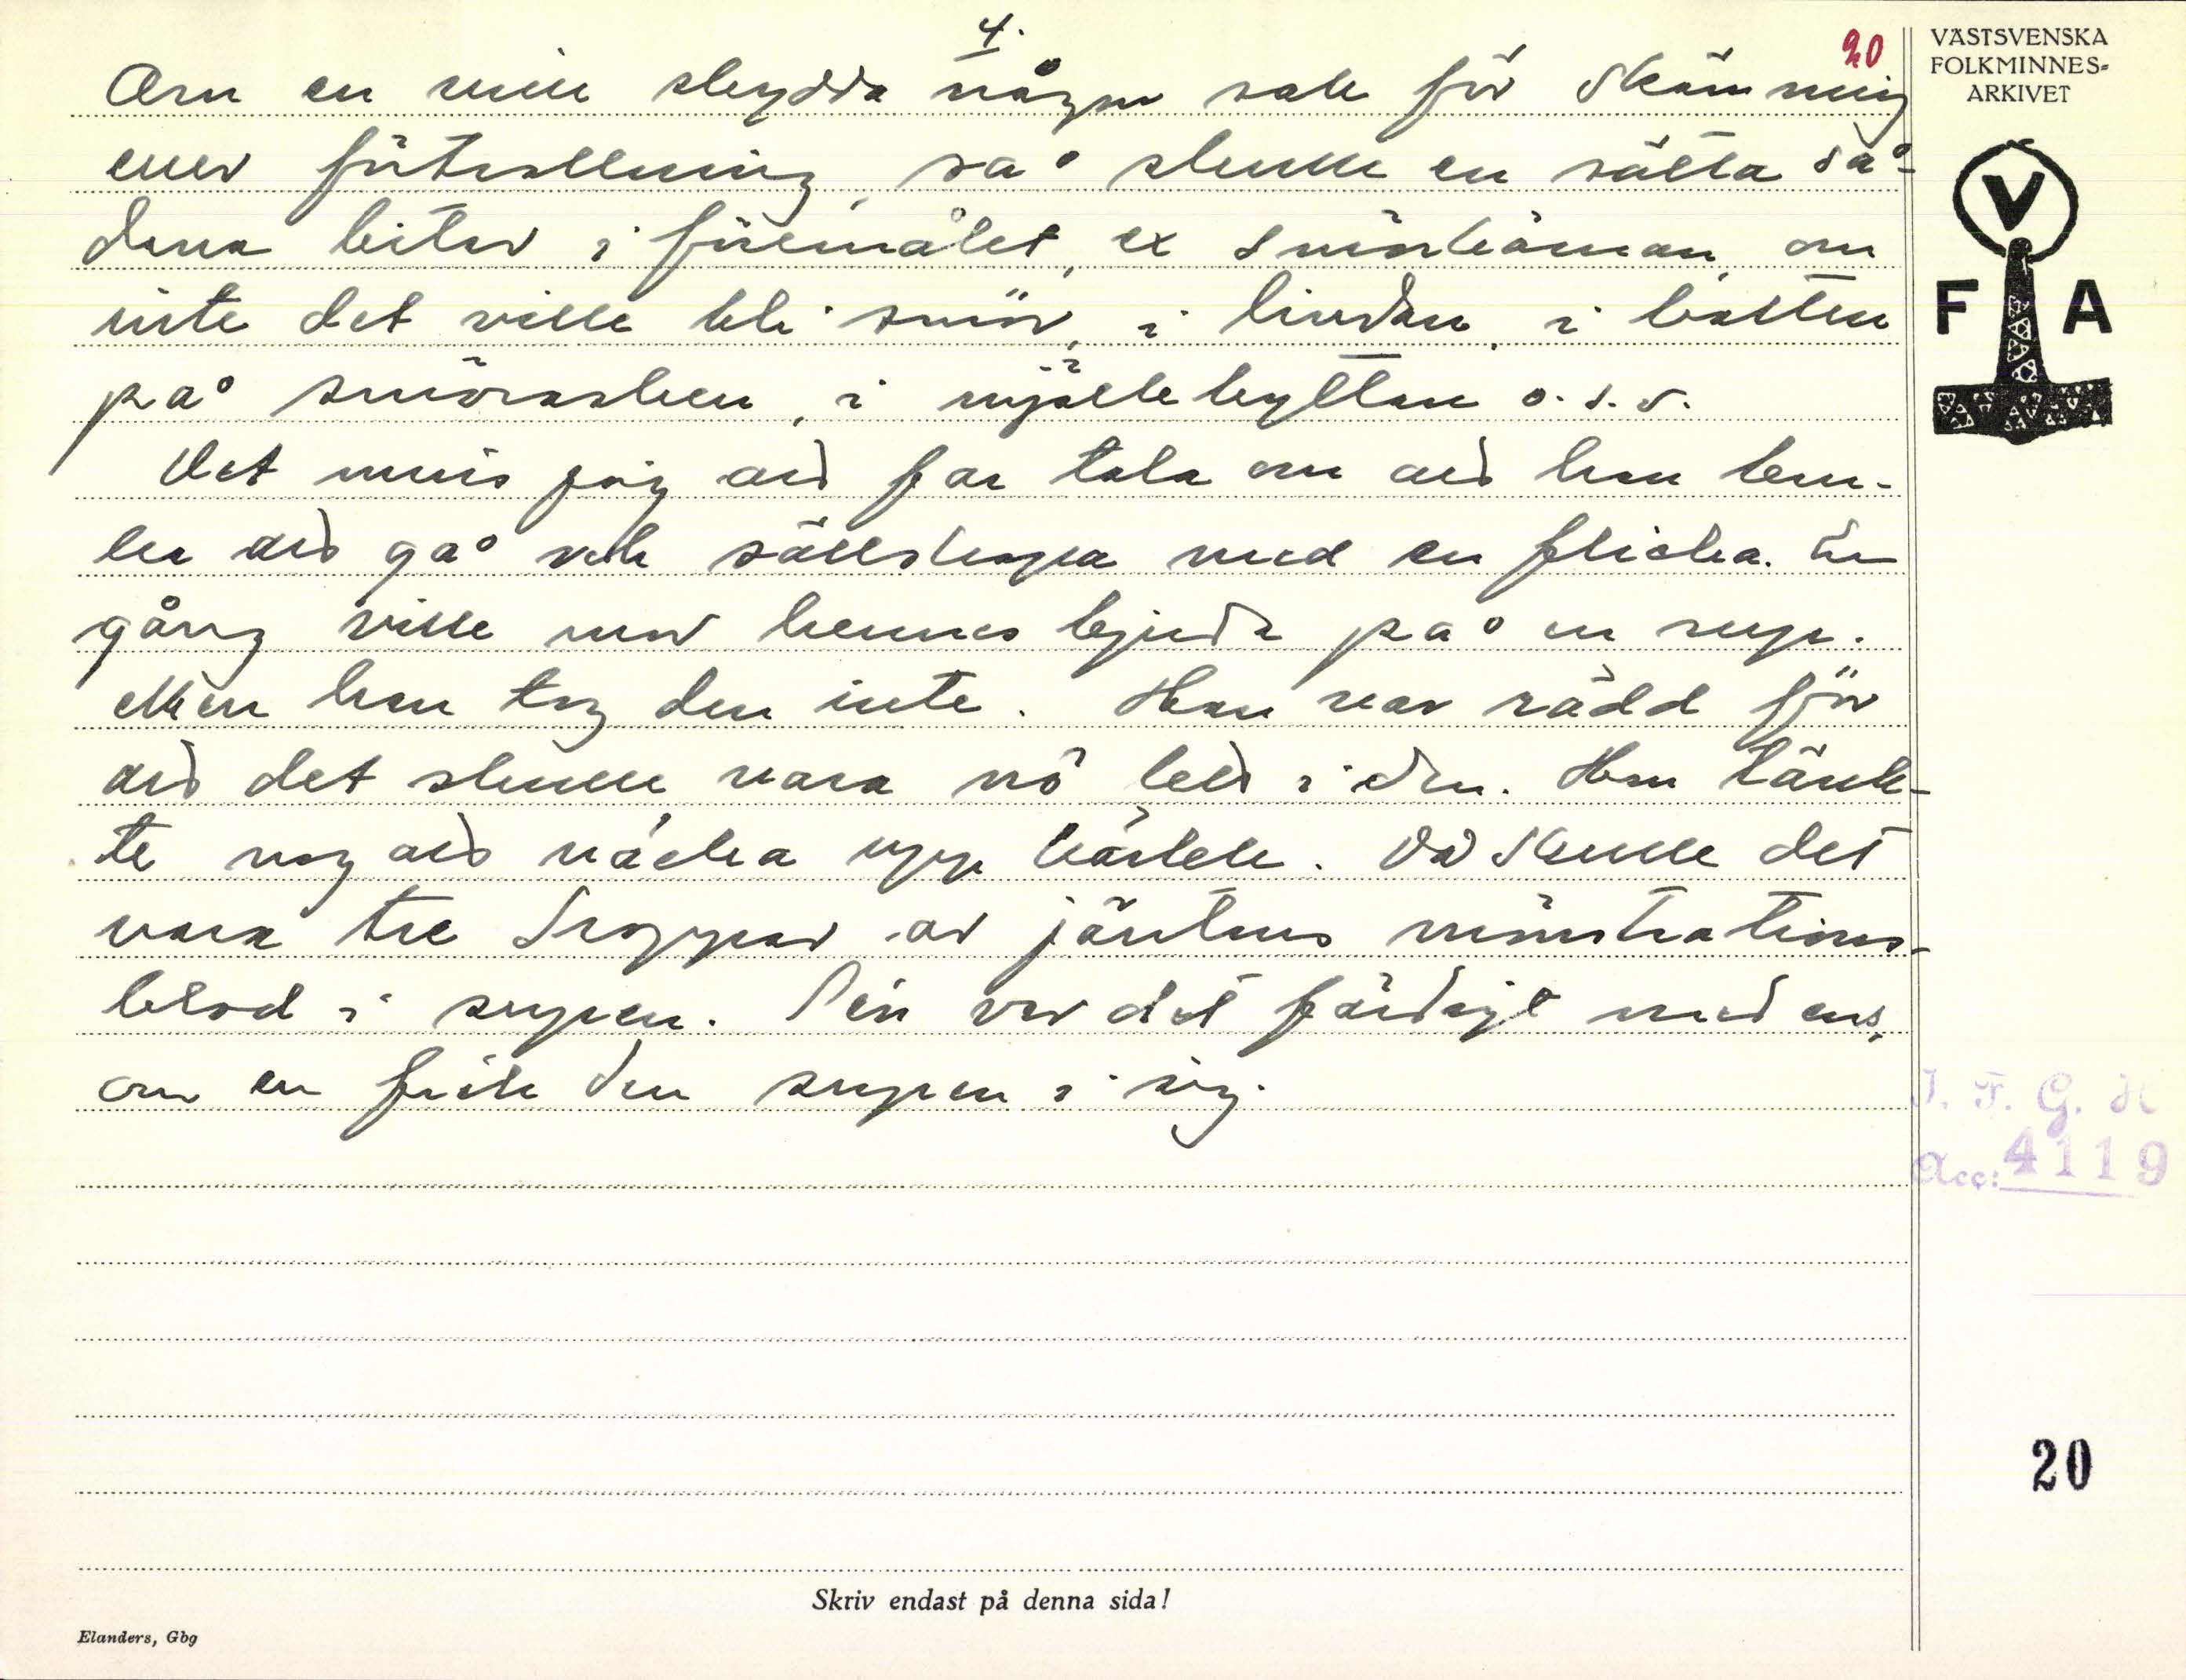 4.
20
Om en ville skydda någon sak för skämning
eller förtrollning, så skulle en sätta så-
dana bitar i föremålet, ex smörkärnan, om
inte det ville bli smör, i lindan, i botten
på smörasken, i mjölkbyttan o.s.v.
Det minns jag att far tala om att han bru-
ka att gå och sällskapa med en flicka. En
gång ville mor hennes bjuda på en sup.
Men han tog den inte. Han var rädd för
att det skulle vara nô lett i den. Hon tänk-
te nog att väcka upp kärlek. Då skulle det
vara tre droppar av jäntans mönstrations-
blod i supen. Sen var det färdigt med ens,
om en fick den supen i sig.
VÄSTSVENSKA
FOLKMINNES-
ARKIVET
V
F A
I. F. G. H
Acc: 4119
20
Skriv endast på denna sida!
Elanders, Gbg